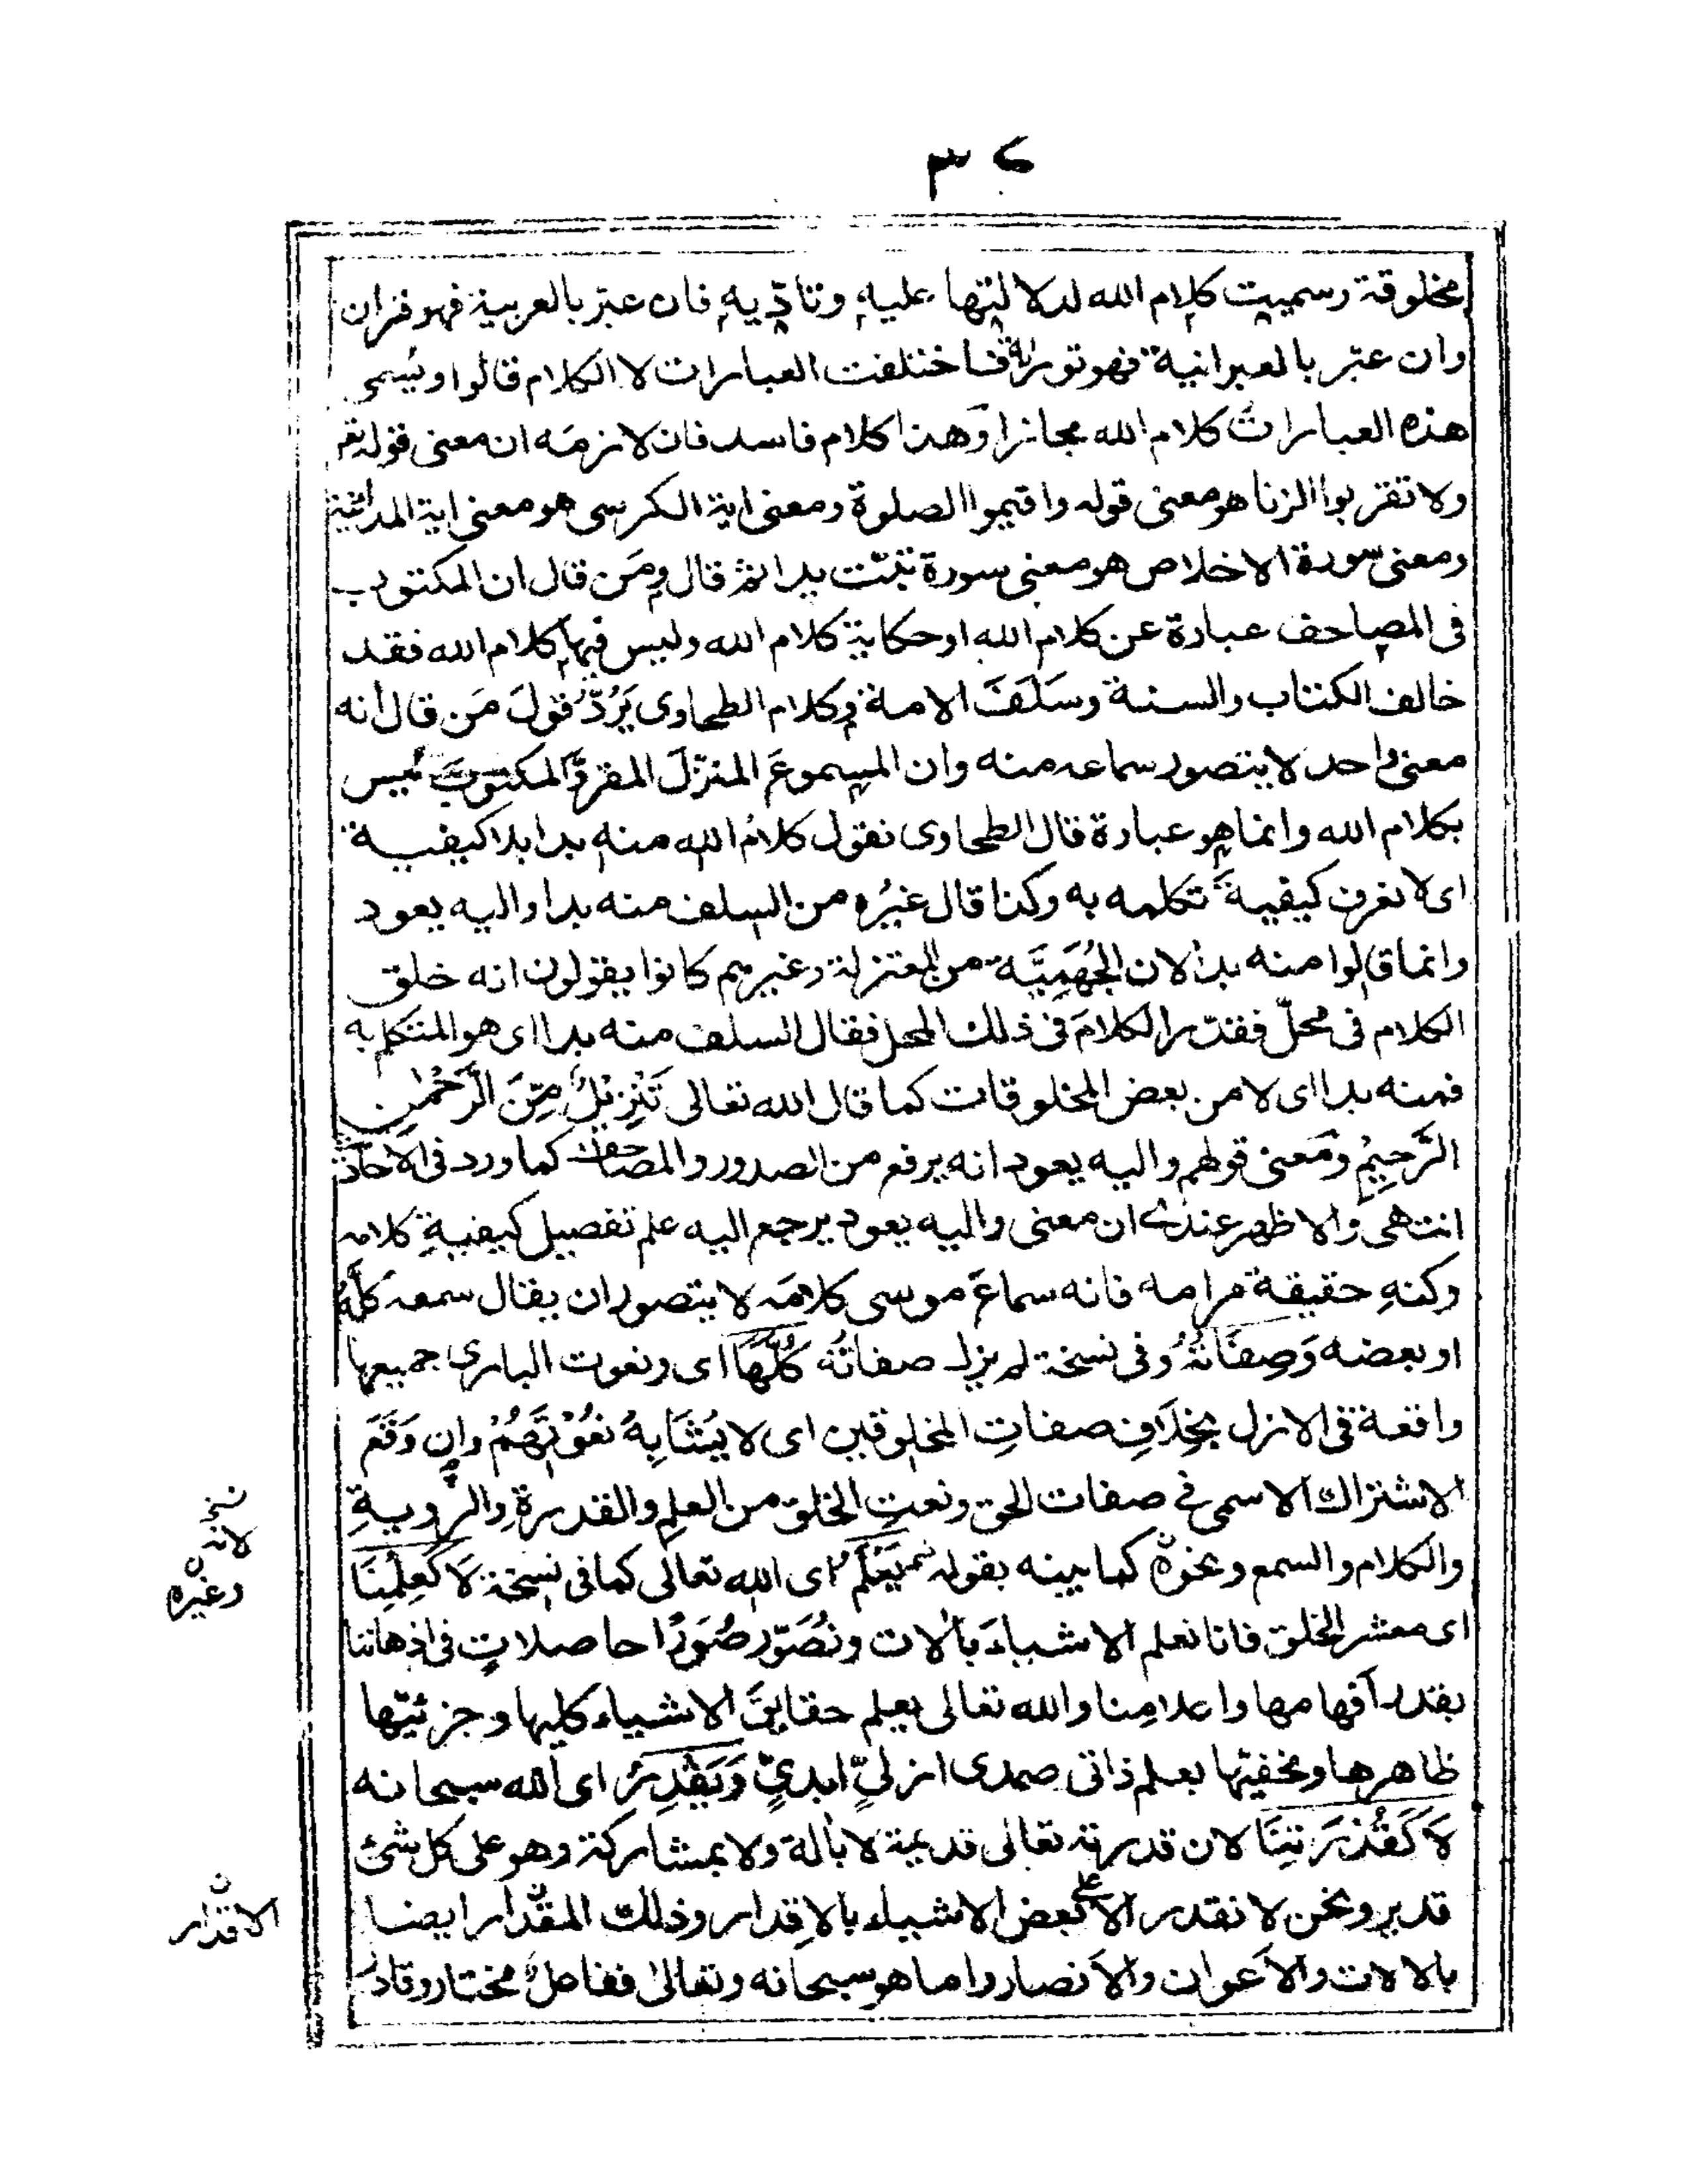 ٣٤
مخلوقة وسميت كلام الله لدلالتها عليه وتأدّيه فان عبّر بالعربية فهو قران
وان عبّر بالعبرانية فهو توراة فاختلفت العبارات لا الكلام قالوا ويسمى
هذه العبارات كلام الله مجازا وهذا كلام فاسد فان لازمه ان معنى قوله تعـ
ولا تقربوا الزنا هو معنى قوله واقيموا الصلوة ومعنى اية الكرسى هو معنى اية المداينة
ومعنى سورة الاخلاص هو معنى سورة تبّت يدا ثم قال ومَن قال ان المكتوب
فى المصاحف عبارة عن كلام الله او حكاية كلام الله وليس فيها كلام الله فقد
خالف الكتاب والسنة وسَلَفَ الامة وكلام الطحاوى يَرُدّ قولَ مَن قال انه
معنى واحد لا يتصور سماعه منه وان المسموعَ المنزّلَ المقروَّ المكتوبَ ليس
بكلام الله وانما هو عبارة قال الطحاوى نقول كلامُ الله منه بدا بلا كيفية
اى لا نعرف كيفيةَ تكلمه به وكذا قال غيرُه من السلف منه بدا واليه يعود
وانما قالوا منه بدا لان الجُهَمِيَّة من المعتزلة وغيرهم كانوا يقولون انه خلق
الكلام فى محلّ فقدّر الكلامَ فى ذلك المحل فقال السلف منه بدا اى هو المتكلم به
فمنه بدا اى لا من بعض المخلوقات كما قال الله تعالى تَنْزِيْلٌ مِّنَ الرَّحْمٰنِ
الرَّحِيْمِ ومعنى قولهم واليه يعود انه يرفع من الصدور والمصاحف كما ورد فى الاحاديث
انتهى والاظهر عندى ان معنى واليه يعود يرجع اليه علم تفصيل كيفيةِ كلامه
وكنهِ حقيقة مرامه فانه سماعَ موسى كلامَه لا يتصور ان يقال سمعه كلَّهُ
او بعضه وَصِفَاتُهُ وفى نسخة لم يزل صفاتُه كُلُّهَا اى ونعوت البارى جميعها
واقعة فى الازل بخِلَافِ صفاتِ المخلوقين اى لا يُشَابِهُ نعُوْتَهُمْ وإن وَقَعَ
الاشتراك الاسمى فى صفات الحق ونعتِ الخلق من العلمِ والقدرةِ والرويةِ
والكلام والسمع ونحوه كما بينه بقوله يَعْلَمُ اى الله تعالى كما فى نسخة لَا كَعِلْمِنَا
اى معشر الخلق فانا نعلم الاشياءَ بآلات ونُصَوّر صُوَرًا حاصلاتٍ فى اذهاننا
بقدر افهامها واعلامِنا والله تعالى يعلم حقايقَ الاشياء كليها وجزئيّها
ظاهرها ومخفيّها بعلم ذاتى صمدى ازلىٍّ ابدىٍّ وَيَقْدِرُ اى الله سبحانه
لَا كَقُدْرَتِنَا لان قدرته تعالى قديمة لا بآلة ولا بمشاركة وهو على كل شئ
قدير ونحن لا نقدر الا على بعض الاشياء بالاقِدار وذلك المقدار ايضا
بالالات والاَعوان والاَنصار واما هو سبحانه وتعالىٰ ففاعلٌ مختار وقادر
نسخ
لانه
ن
وغيره
ن
الاقدار